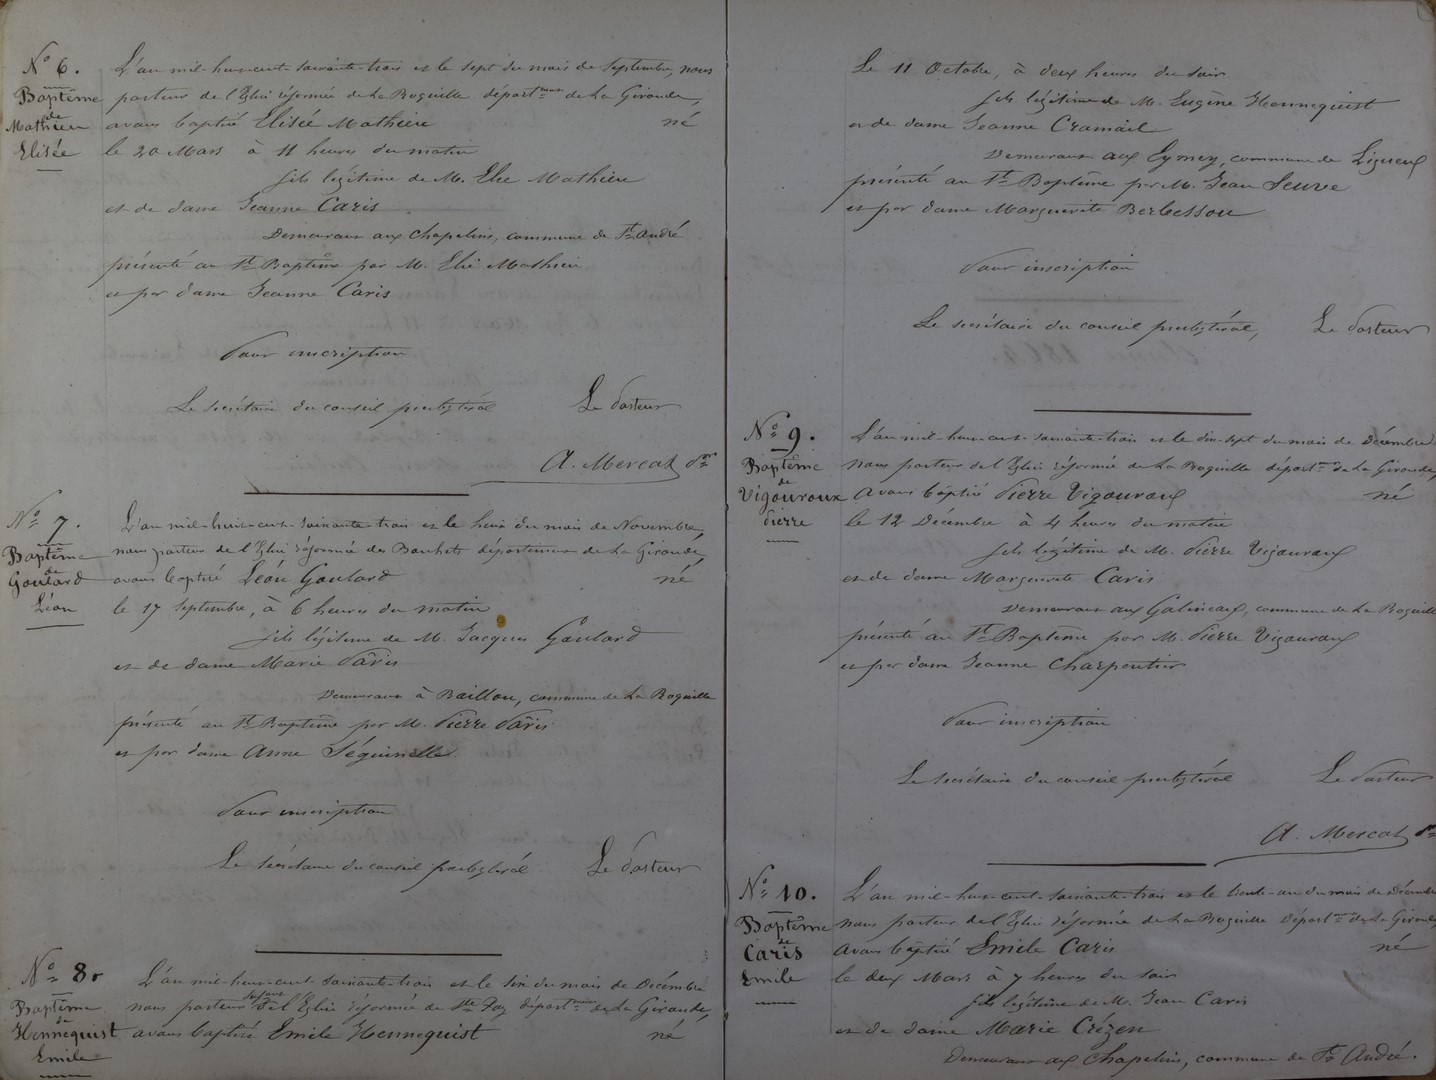 N° 6.
Baptême
de
Mathieu
Elisée
L'an mil-huit-cent-soixante-trois et le sept du mois de Septembre, nous
pasteur de l'Eglise réformée de La Roquille départ. de La Gironde,
avons baptisé Elisée Mathieu né
le 20 Mars à 11 heures du matin
fils légitime de M. Elie Mathieu
et de dame Jeanne Caris
Demeurant aux Chapelins, commune de St André
présenté au St Baptême par M. Elie Mathieu
et par dame Jeanne Caris
Pour inscription
Le secrétaire du conseil presbytéral Le Pasteur
A. Mercat
N° 7.
Baptême
de
Goulard
Léon
L'an mil-huit-cent-soixante-trois et le huit du mois de Novembre,
nous pasteur de l'Eglise réformée des Bouhets département de La Gironde,
avons baptisé Léon Goulard né
le 17 Septembre, à 6 heures du matin
fils légitime de M. Jacques Goulard
et de dame Marie Pâris
Demeurant à Baillou, commune de La Roquille
présenté au St Baptême par M. Pierre Pâris
et par dame Anne Séguinelle.
Pour inscription
Le secrétaire du conseil presbytéral Le Pasteur
N° 8
Baptême
de
Hennequist
Emile
L'an mil-huit-cent-soixante-trois et le six du mois de Décembre
nous pasteur de l'Eglise réformée de Ste Foy départ. de La Gironde,
avons baptisé Emile Hennequist né
Le 11 Octobre, à deux heures du soir
fils légitime de M. Eugène Hennequist
et de dame Jeanne Cramail
Demeurant aux Eymery, commune de Ligueux
présenté au St Baptême par M. Jean Seuve
et par dame Marguerite Berbesson
Pour inscription
Le secrétaire du conseil presbytéral, Le Pasteur
N° 9.
Baptême
de
Vigouroux
Pierre
L'an mil-huit-cent-soixante-trois et le dix-sept du mois de Décembre
nous pasteur de l'Eglise réformée de La Roquille départ. de La Gironde,
avons baptisé Pierre Vigouroux né
le 12 Décembre à 4 heures du matin
fils légitime de M. Pierre Vigouroux
et de dame Marguerite Caris
Demeurant aux Galineaux, commune de La Roquille
présenté au St Baptême par M. Pierre Vigouroux
et par dame Jeanne Charpentier
Pour inscription
Le secrétaire du conseil presbytéral Le Pasteur
A. Mercat
N° 10.
Baptême
de
Caris
Emile
L'an mil-huit-cent-soixante-trois et le trente-un du mois de Décembre
nous pasteur de l'Eglise réformée de La Roquille départ. de La Gironde,
avons baptisé Emile Caris né
le deux Mars à 7 heures du soir
fils légitime de M. Jean Caris
et de dame Marie Crézen
Demeurant aux Chapelins, commune de St André.